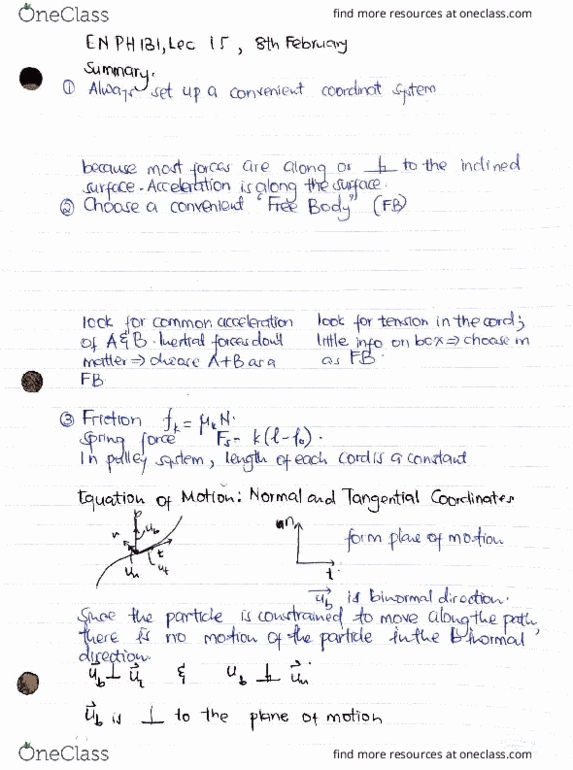 OneClass
find more resources at oneclass.com
EN PH 131, Lec 15, 8th February
Summary.
① Always set up a convenient coordinat system
because most forces are along or ⊥ to the inclined
surface. Acceleration is along the surface.
② Choose a convenient "Free Body" (FB)
look for common acceleration
of A & B. Inertial forces don't
matter ⇒ choose A+B as a
FB
look for tension in the cord;
little info on box ⇒ choose m
as FB.
③ Friction fk = μkN.
Spring force Fs = k(l-l₀).
In pulley system, length of each cord is a constant
Equation of Motion: Normal and Tangential Coordinates
b
ub
n
t
un
ut
un
t
form plane of motion
ub is binormal direction.
Since the particle is constrained to move along the path,
there is no motion of the particle in the binormal
direction.
ub ⊥ ut & ub ⊥ un
ub is ⊥ to the plane of motion
OneClass
find more resources at oneclass.com